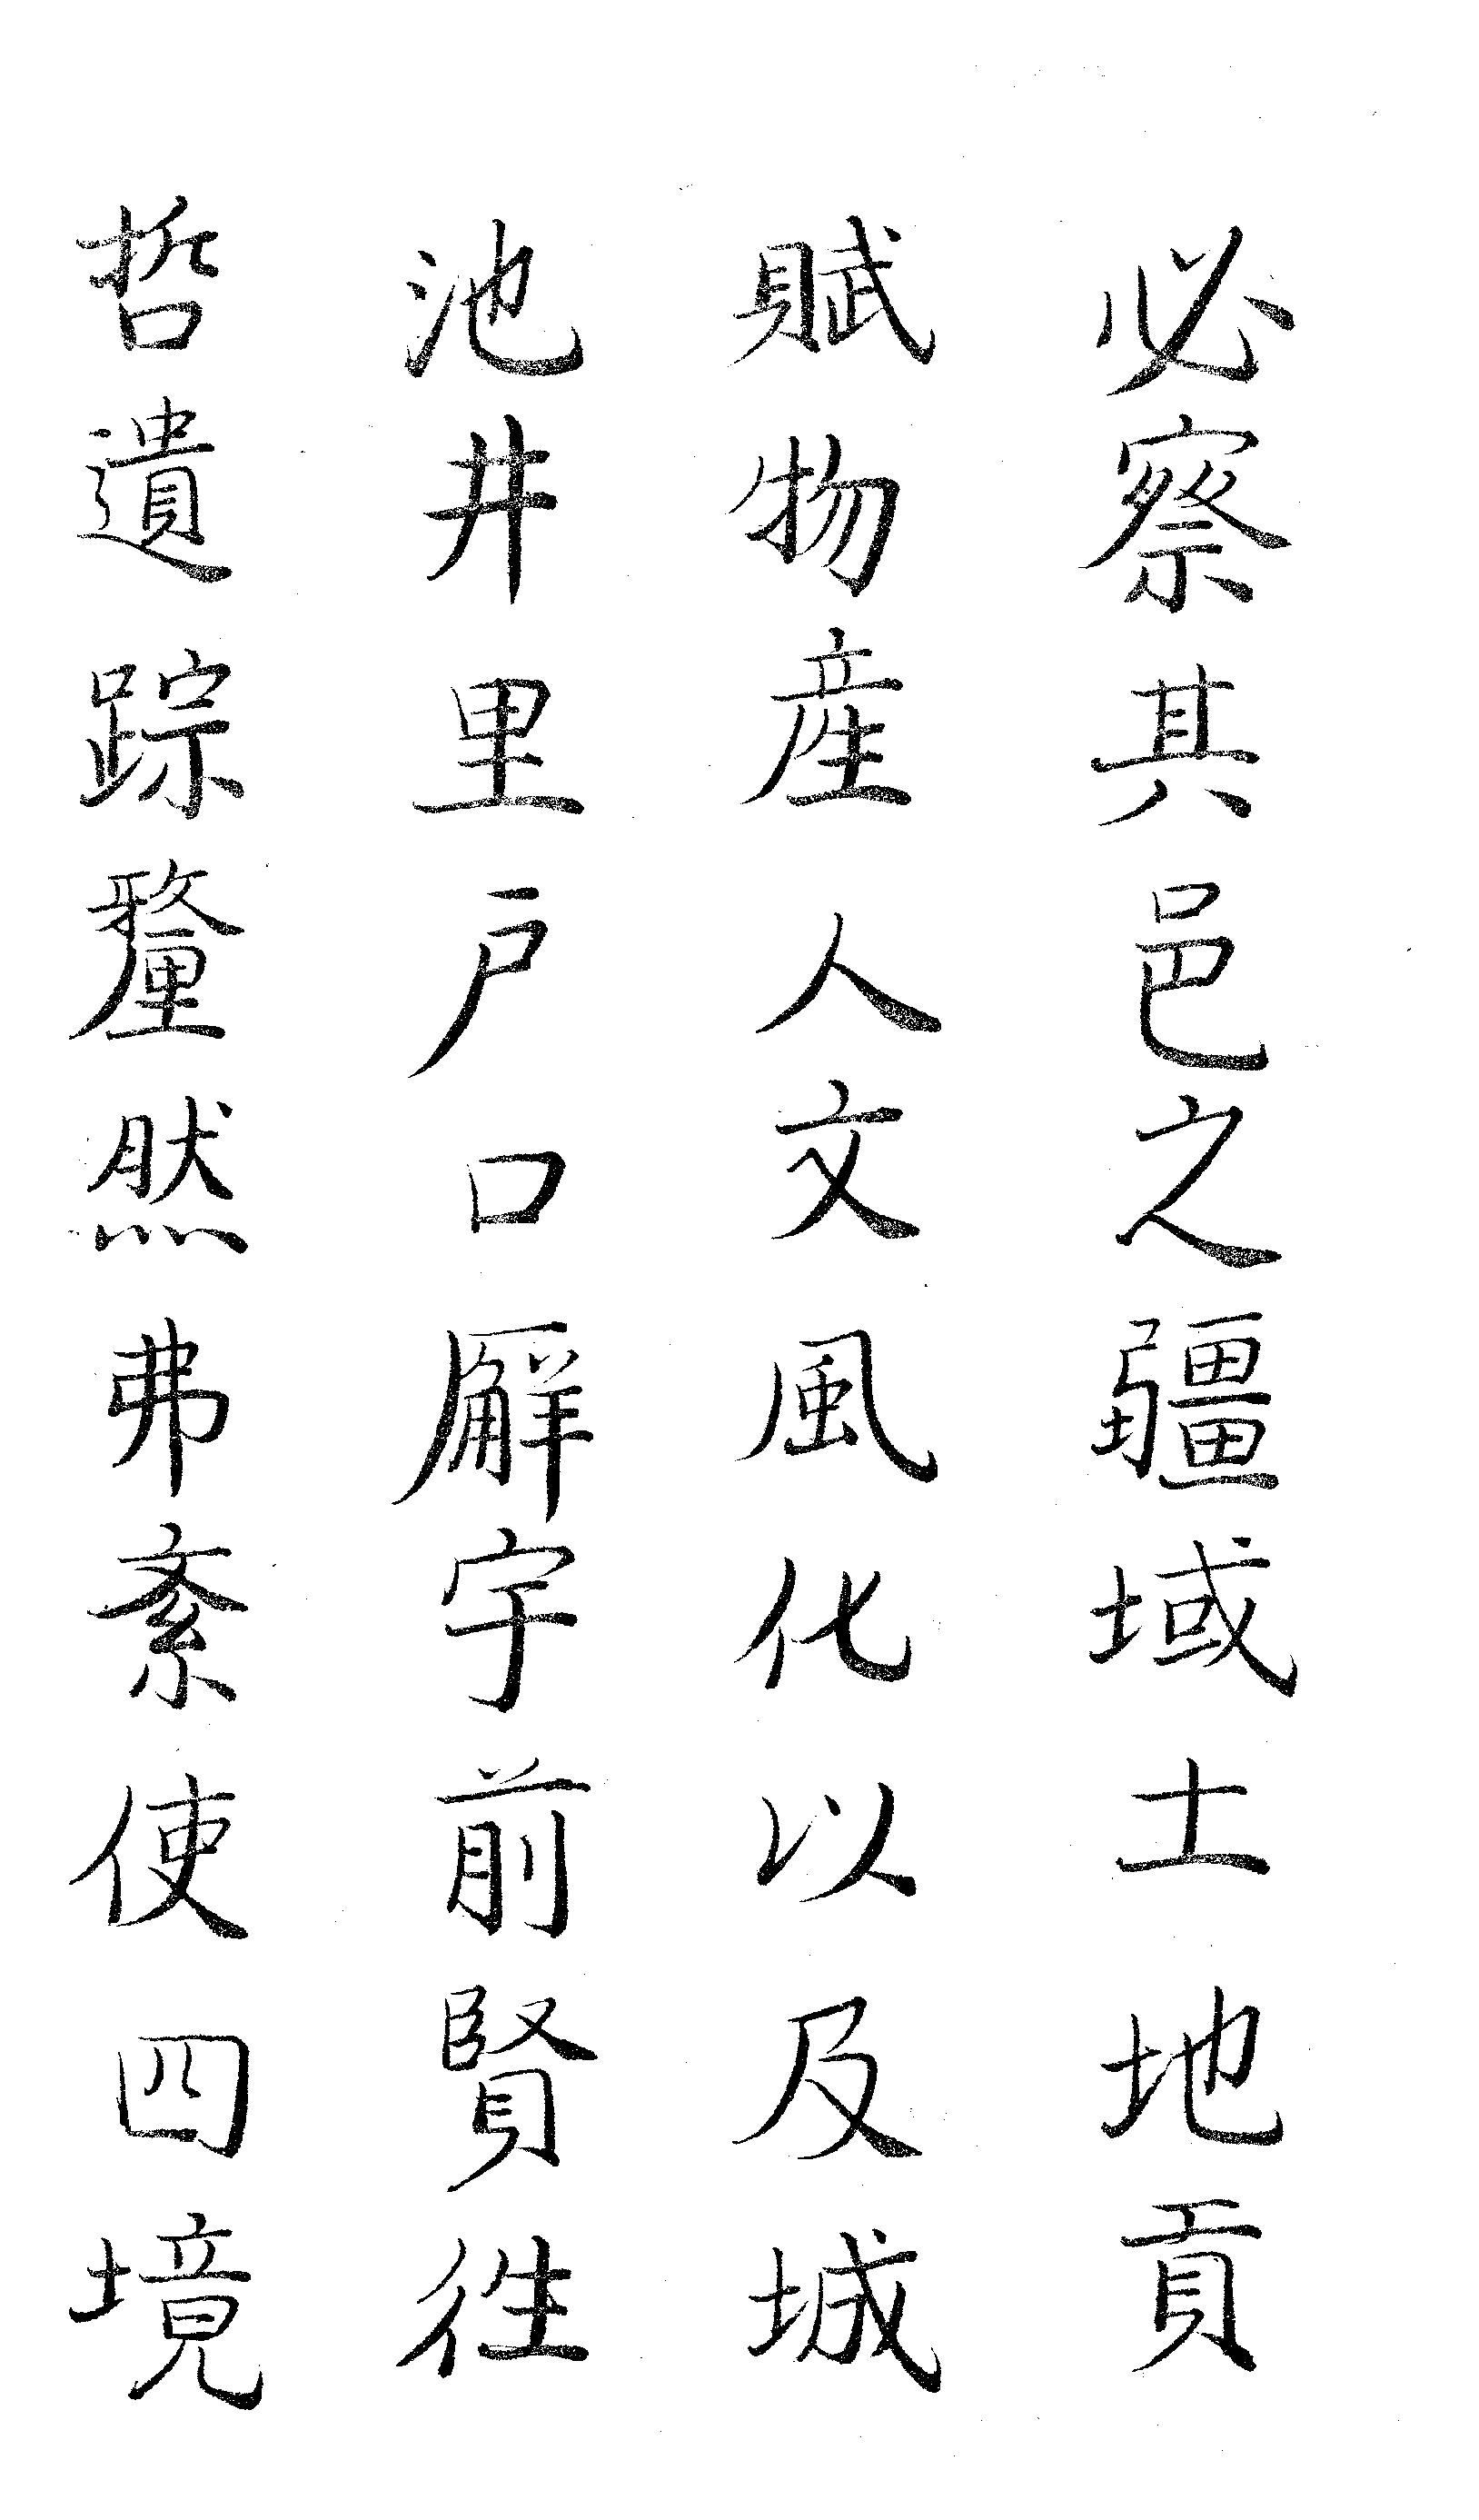 必察其邑之疆域土地貢
賦物産人文風化以及城
池井里戸口廨宇前賢徃
哲遺踪釐然弗紊使四境